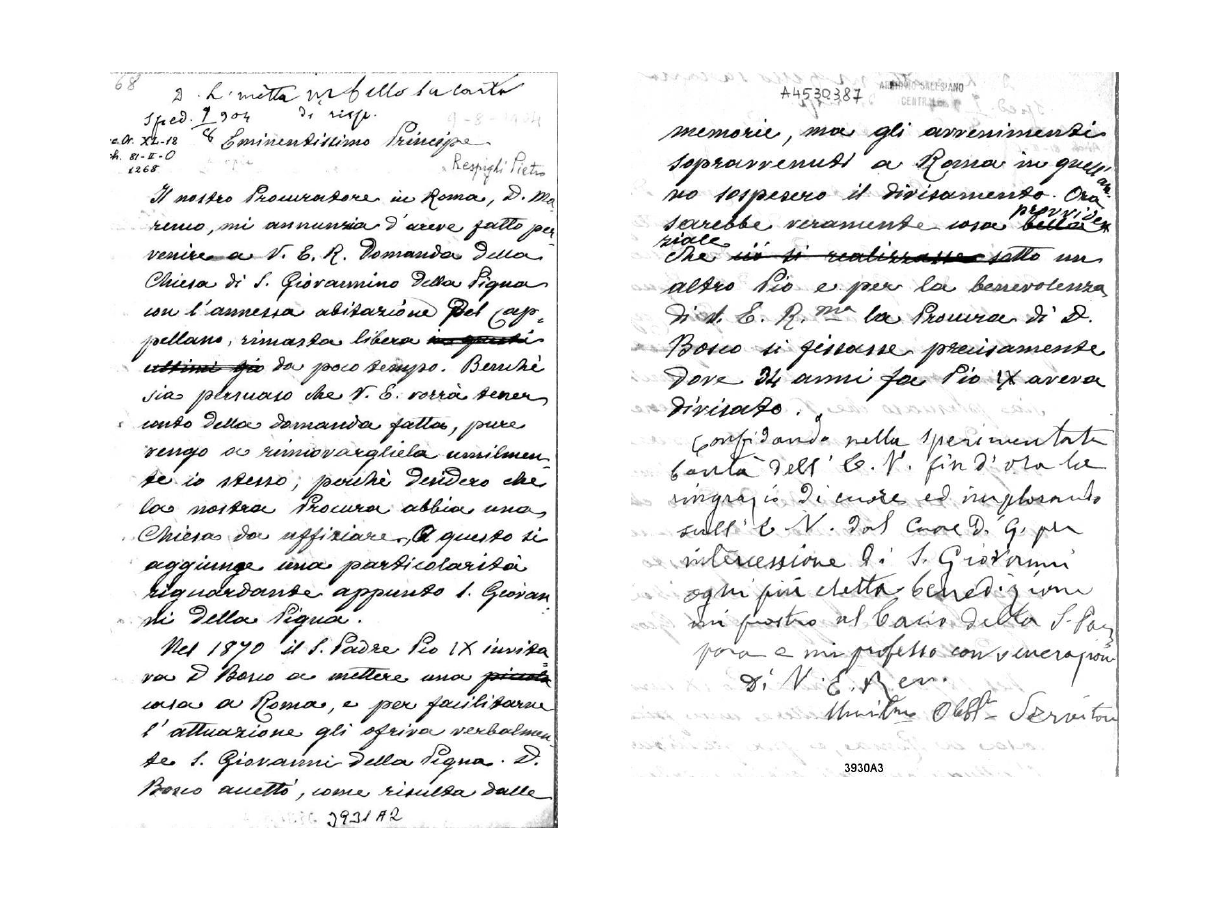 68
D. L. metta in bello su carta
sped. 9/8 904 di risp.
Or. XI-18
81-II-0
1268
Eminentissimo Principe
Respighi Pietro
Il nostro Procuratore in Roma, D. Ma-
renco, mi annunzia d'avere fatto per-
venire a V. E. R. Domanda della
Chiesa di S. Giovannino della Pigna
con l'annessa abitazione del Cap-
pellano, rimasta libera in questi
ultimi già da poco tempo. Benchè
sia persuaso che V. E. vorrà tener
conto della domanda fatta, pure
vengo a rinnovargliela umilmen-
te io stesso; poichè desidero che
la nostra Procura abbia una
Chiesa da uffiziare. A questo si
aggiunge una particolarità
riguardante appunto S. Giovan-
ni della Pigna.
Nel 1870 il S. Padre Pio IX invita-
va D Bosco a mettere una piccola
casa a Roma, e per facilitarne
l'attuazione gli ofriva verbalmen-
te S. Giovanni della Pigna. D.
Bosco accettò, come risulta dalle
3931A2
A4530387
ARCHIVIO SALESIANO
CENTRALE
memorie, ma gli avvenimenti
sopravvenuti a Roma in quell'an-
no sospesero il divisamento. Ora
sarebbe veramente cosa bella provviden
ziale
che ciò si realizzasse sotto un
altro Pio e per la benevolenza
di V. E. R.ma la Procura di D.
Bosco si fissasse precisamente
dove 34 anni fa Pio IX aveva
divisato.
Confidando nella sperimentata
bontà dell' E. V. fin d'ora La
ringrazio di cuore ed implorando
sull' E. V. dal Cuore D. G. per
intercessione di S. Giovanni
ogni più eletta benedizione
mi prostro al bacio della S. Por
pora e mi professo con venerazione
Di V. E. Rev.
Umilmo Obbl. Servitore
3930A3